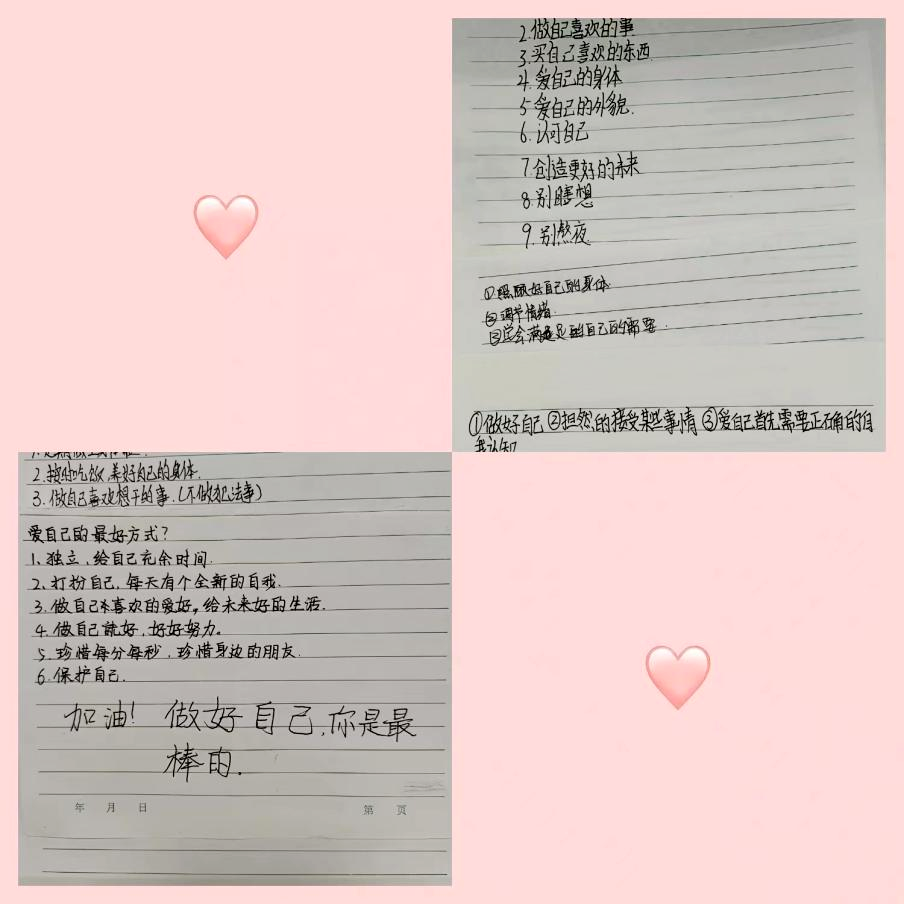 2.做自己喜欢的事
3.买自己喜欢的东西
4.爱自己的身体
5.爱自己的外貌.
6.认可自己
7.创造更好的未来
8.别瞎想
9.别熬夜
①照顾好自己的身体
②调节情绪
③学会满足自己的需要
①做好自己 ②坦然的接受某些事情 ③爱自己首先需要正确的自
我认知
2.按时吃饭,养好自己的身体.
3.做自己喜欢想干的事.(不做犯法事)
爱自己的最好方式?
1.独立、给自己充余时间.
2.打扮自己,每天有个全新的自我.
3.做自己喜欢的爱好,给未来好的生活.
4.做自己就好,好好努力。
5.珍惜每分每秒.珍惜身边的朋友.
6.保护自己.
加油!做好自己,你是最
棒的.
年 月 日 第 页